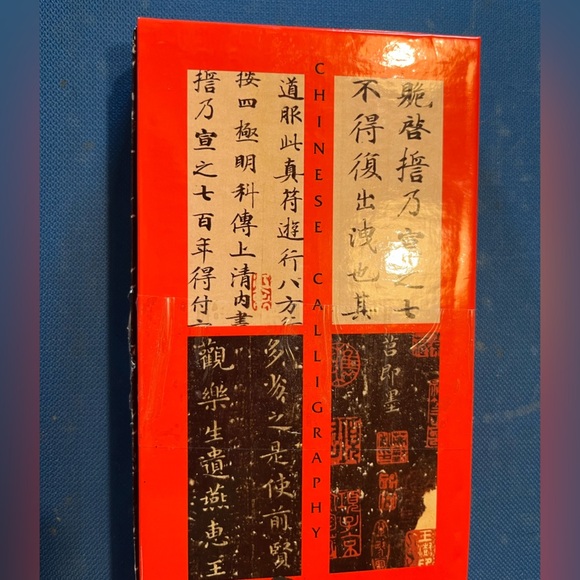 CHINESE CALLIGRAPHY
跪啓擔乃宣之七
不得復出洩也其
道服此真符遊行八方行
按四極明科傳上清內書
擔乃宣之七百年得付
莒即墨
多劣之是使前賢
觀樂生遺燕惠王